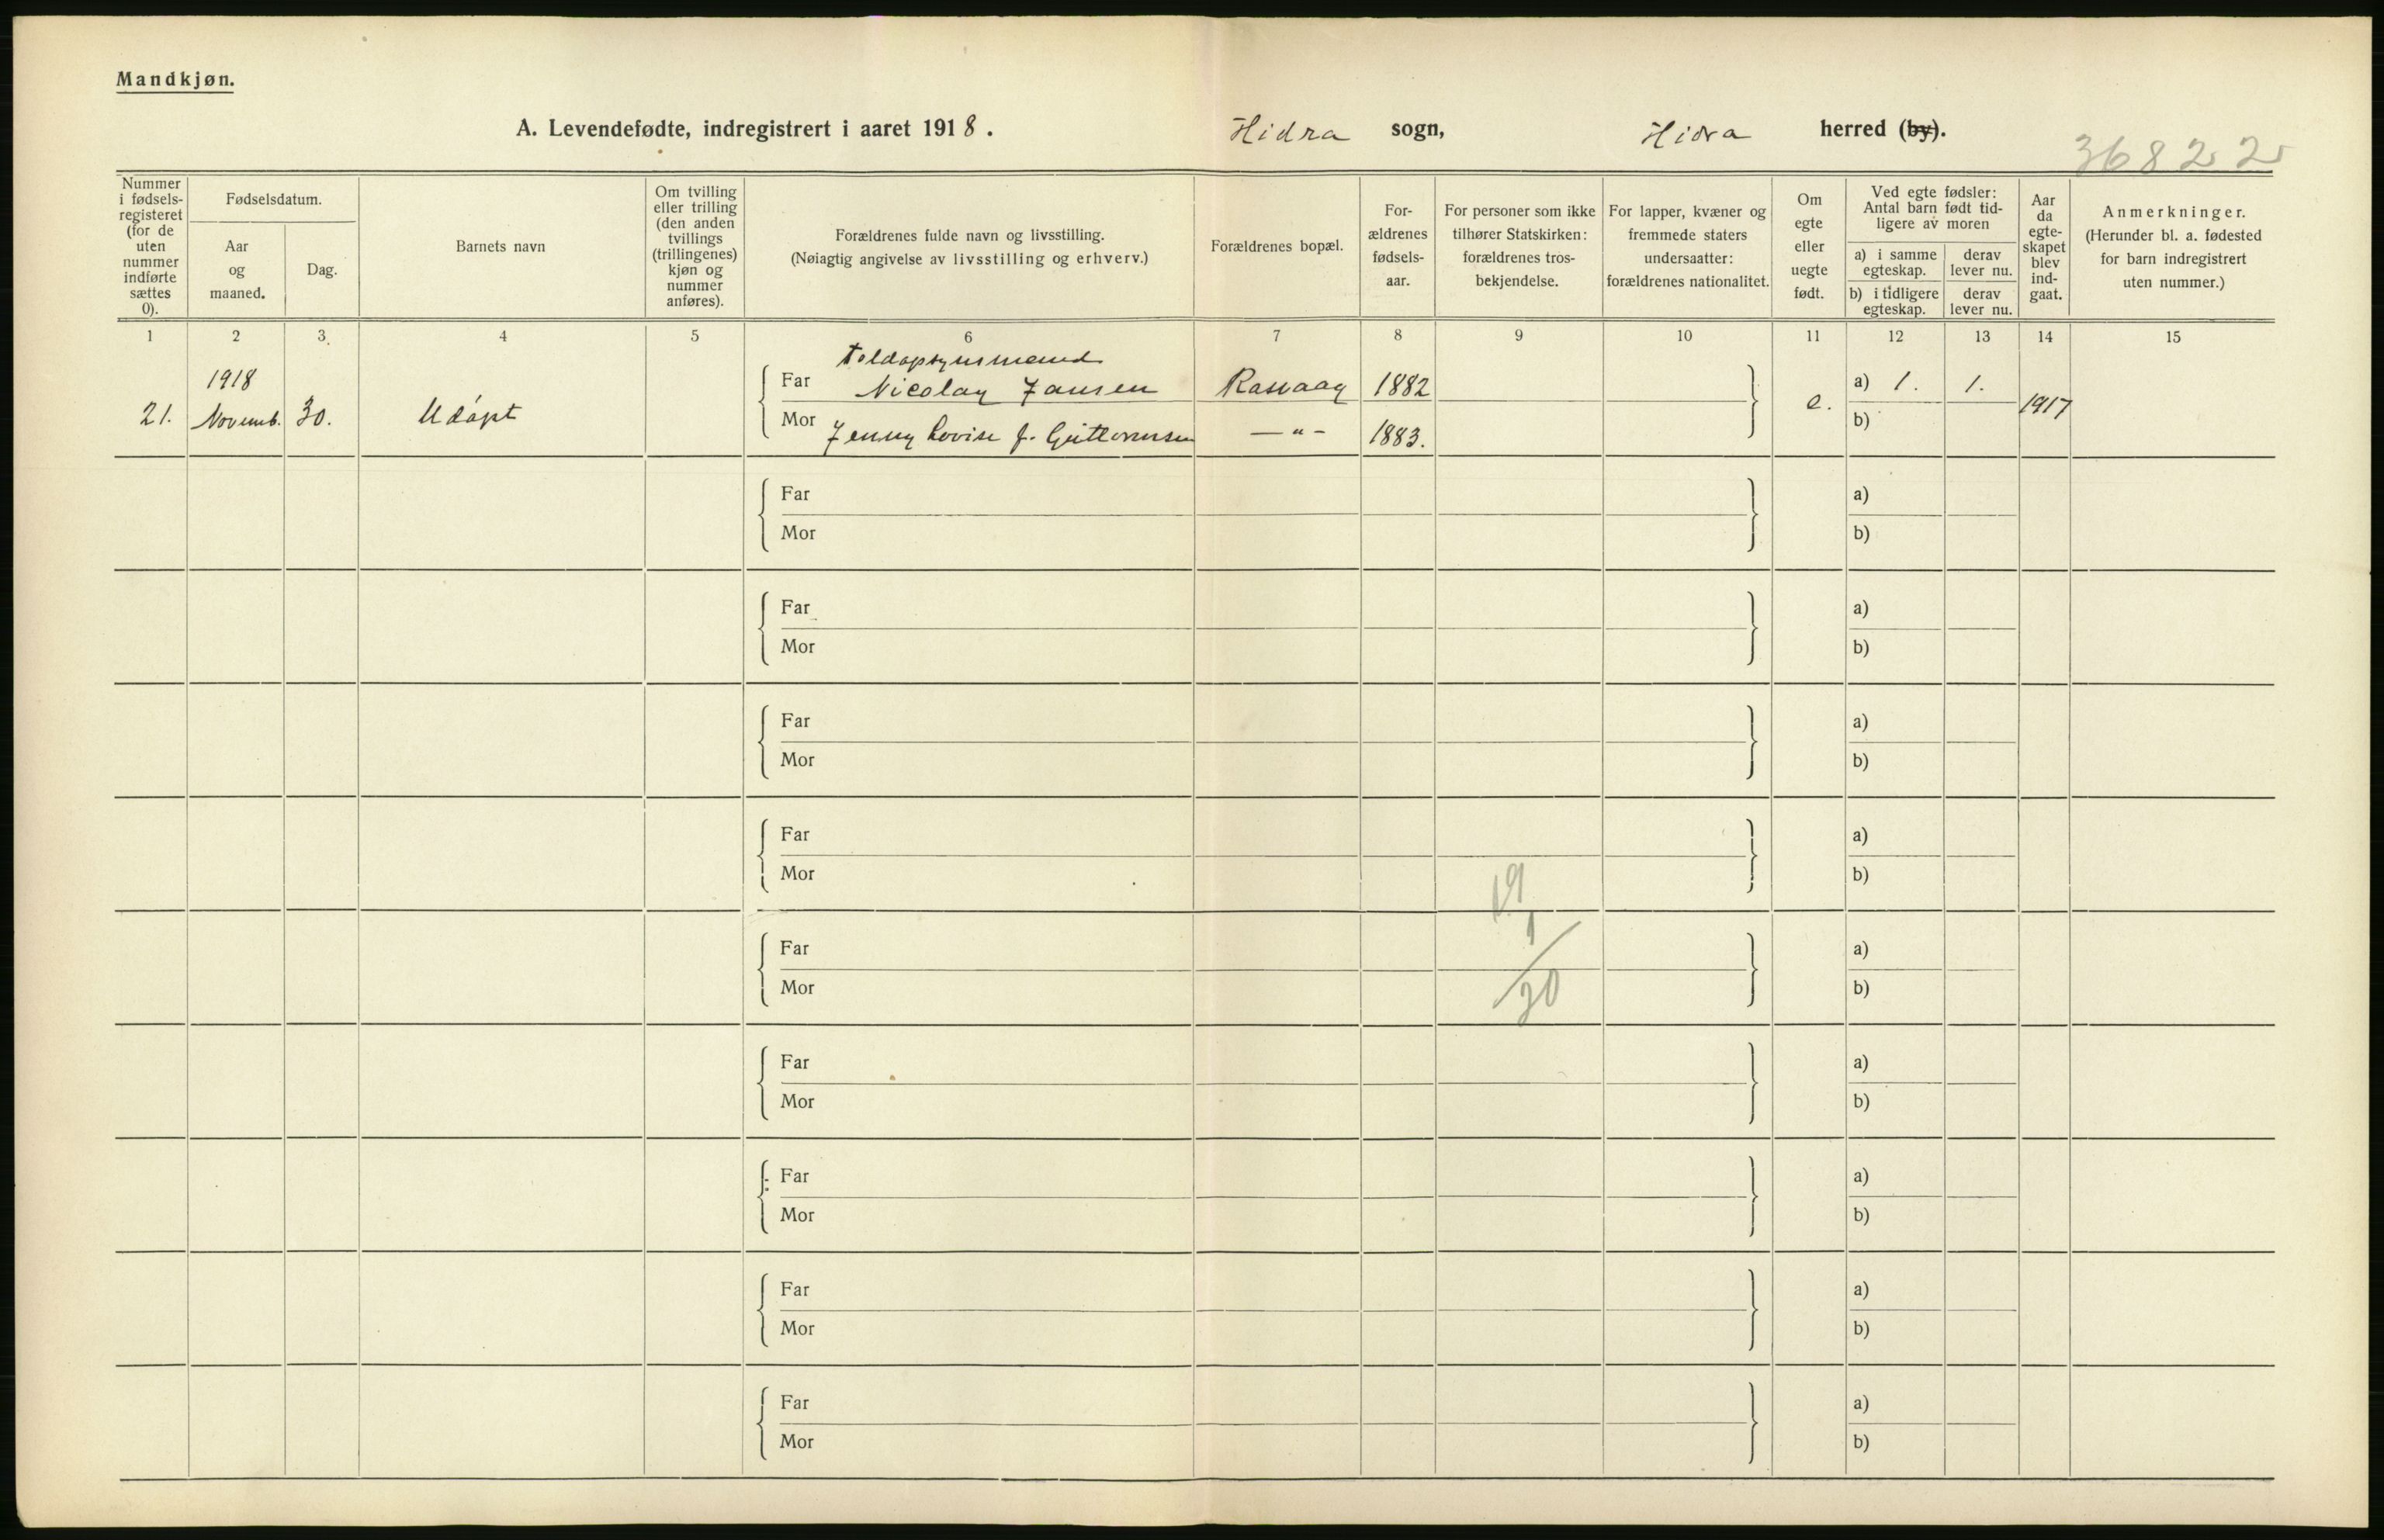 Mandkjøn.
A. Levendefødte, indregistrert i aaret 1918. Hidra sogn, Hidra herred (by).
36822
Nummer i fødsels-registeret (for de uten nummer indførte sættes 0).
Fødselsdatum.
Aar og maaned.
Dag.
Barnets navn
Om tvilling eller trilling (den anden tvillings (trillingenes) kjøn og nummer anføres).
Forældrenes fulde navn og livsstilling.
(Nøiagtig angivelse av livsstilling og erhverv.)
Forældrenes bopæl.
For-ældrenes fødsels-aar.
For personer som ikke tilhører Statskirken: forældrenes tros-bekjendelse.
For lapper, kvæner og fremmede staters undersaatter: forældrenes nationalitet.
Om egte eller uegte født.
Ved egte fødsler: Antal barn født tid-ligere av moren
a) i samme egteskap.
derav lever nu.
b) i tidligere egteskap.
derav lever nu.
Aar da egte-skapet blev ind-gaat.
Anmerkninger.
(Herunder bl. a. fødested for barn indregistrert uten nummer.)
1 2 3. 4 5 6 7 8 9 10 11 12 13 14 15
Toldopsynsmand
1918
Far Nicolay Jansen Rasvaag 1882 a) 1. 1.
21. Novemb. 30. Udöpt e. 1917
Mor Jenny Lovise f. Guttormsen —"— 1883. b)
Far a)
Mor b)
Far a)
Mor b)
Far a)
Mor b)
Far a)
Mor b)
19
Far a)
1
Mor 20 b)
Far a)
Mor b)
Far a)
Mor b)
Far a)
Mor b)
Far a)
Mor b)